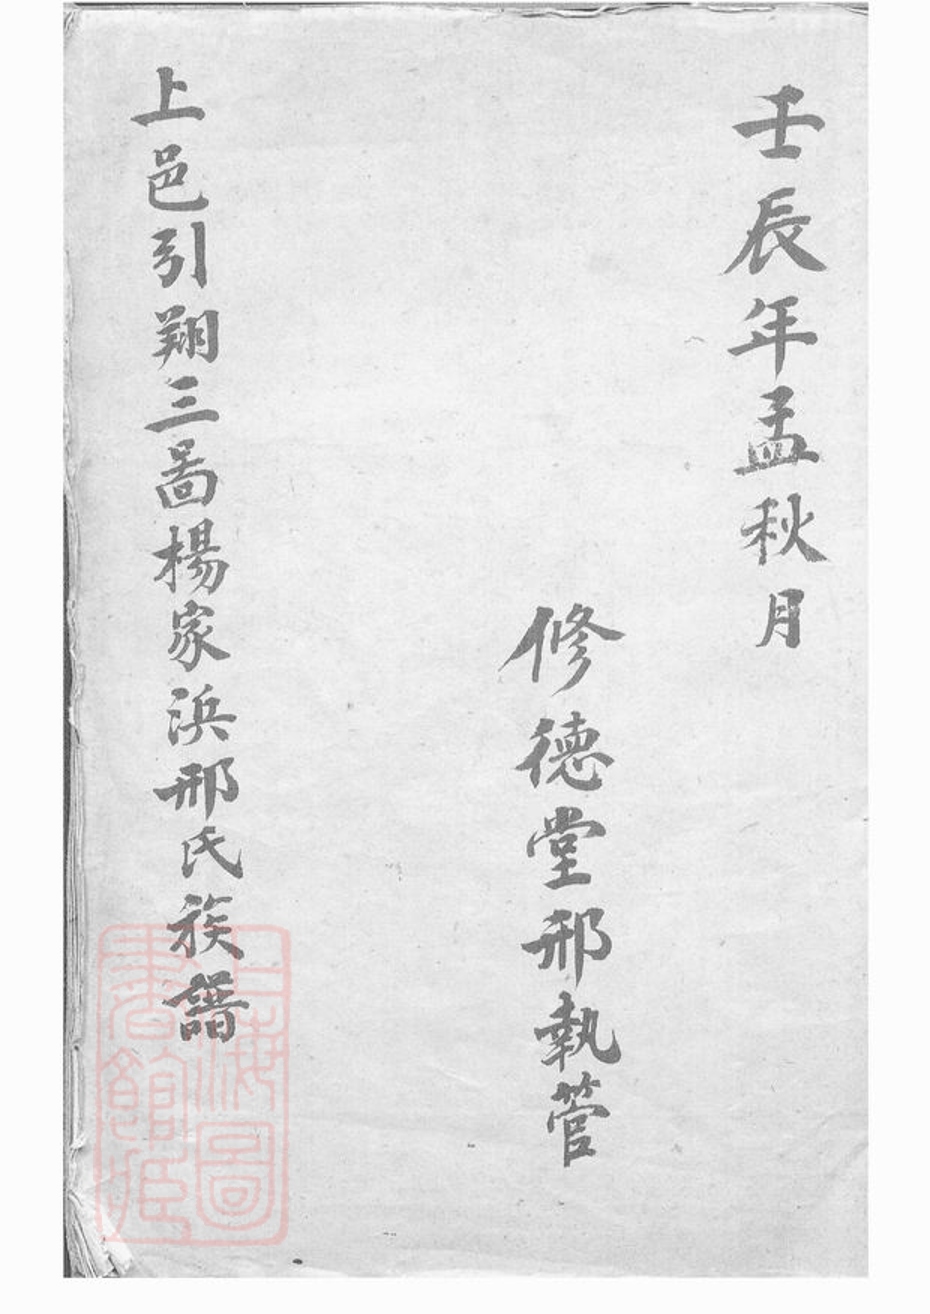 壬辰年孟秋月
修德堂邢執管
上邑引翔三啚楊家浜邢氏族譜
上海圖
書館藏